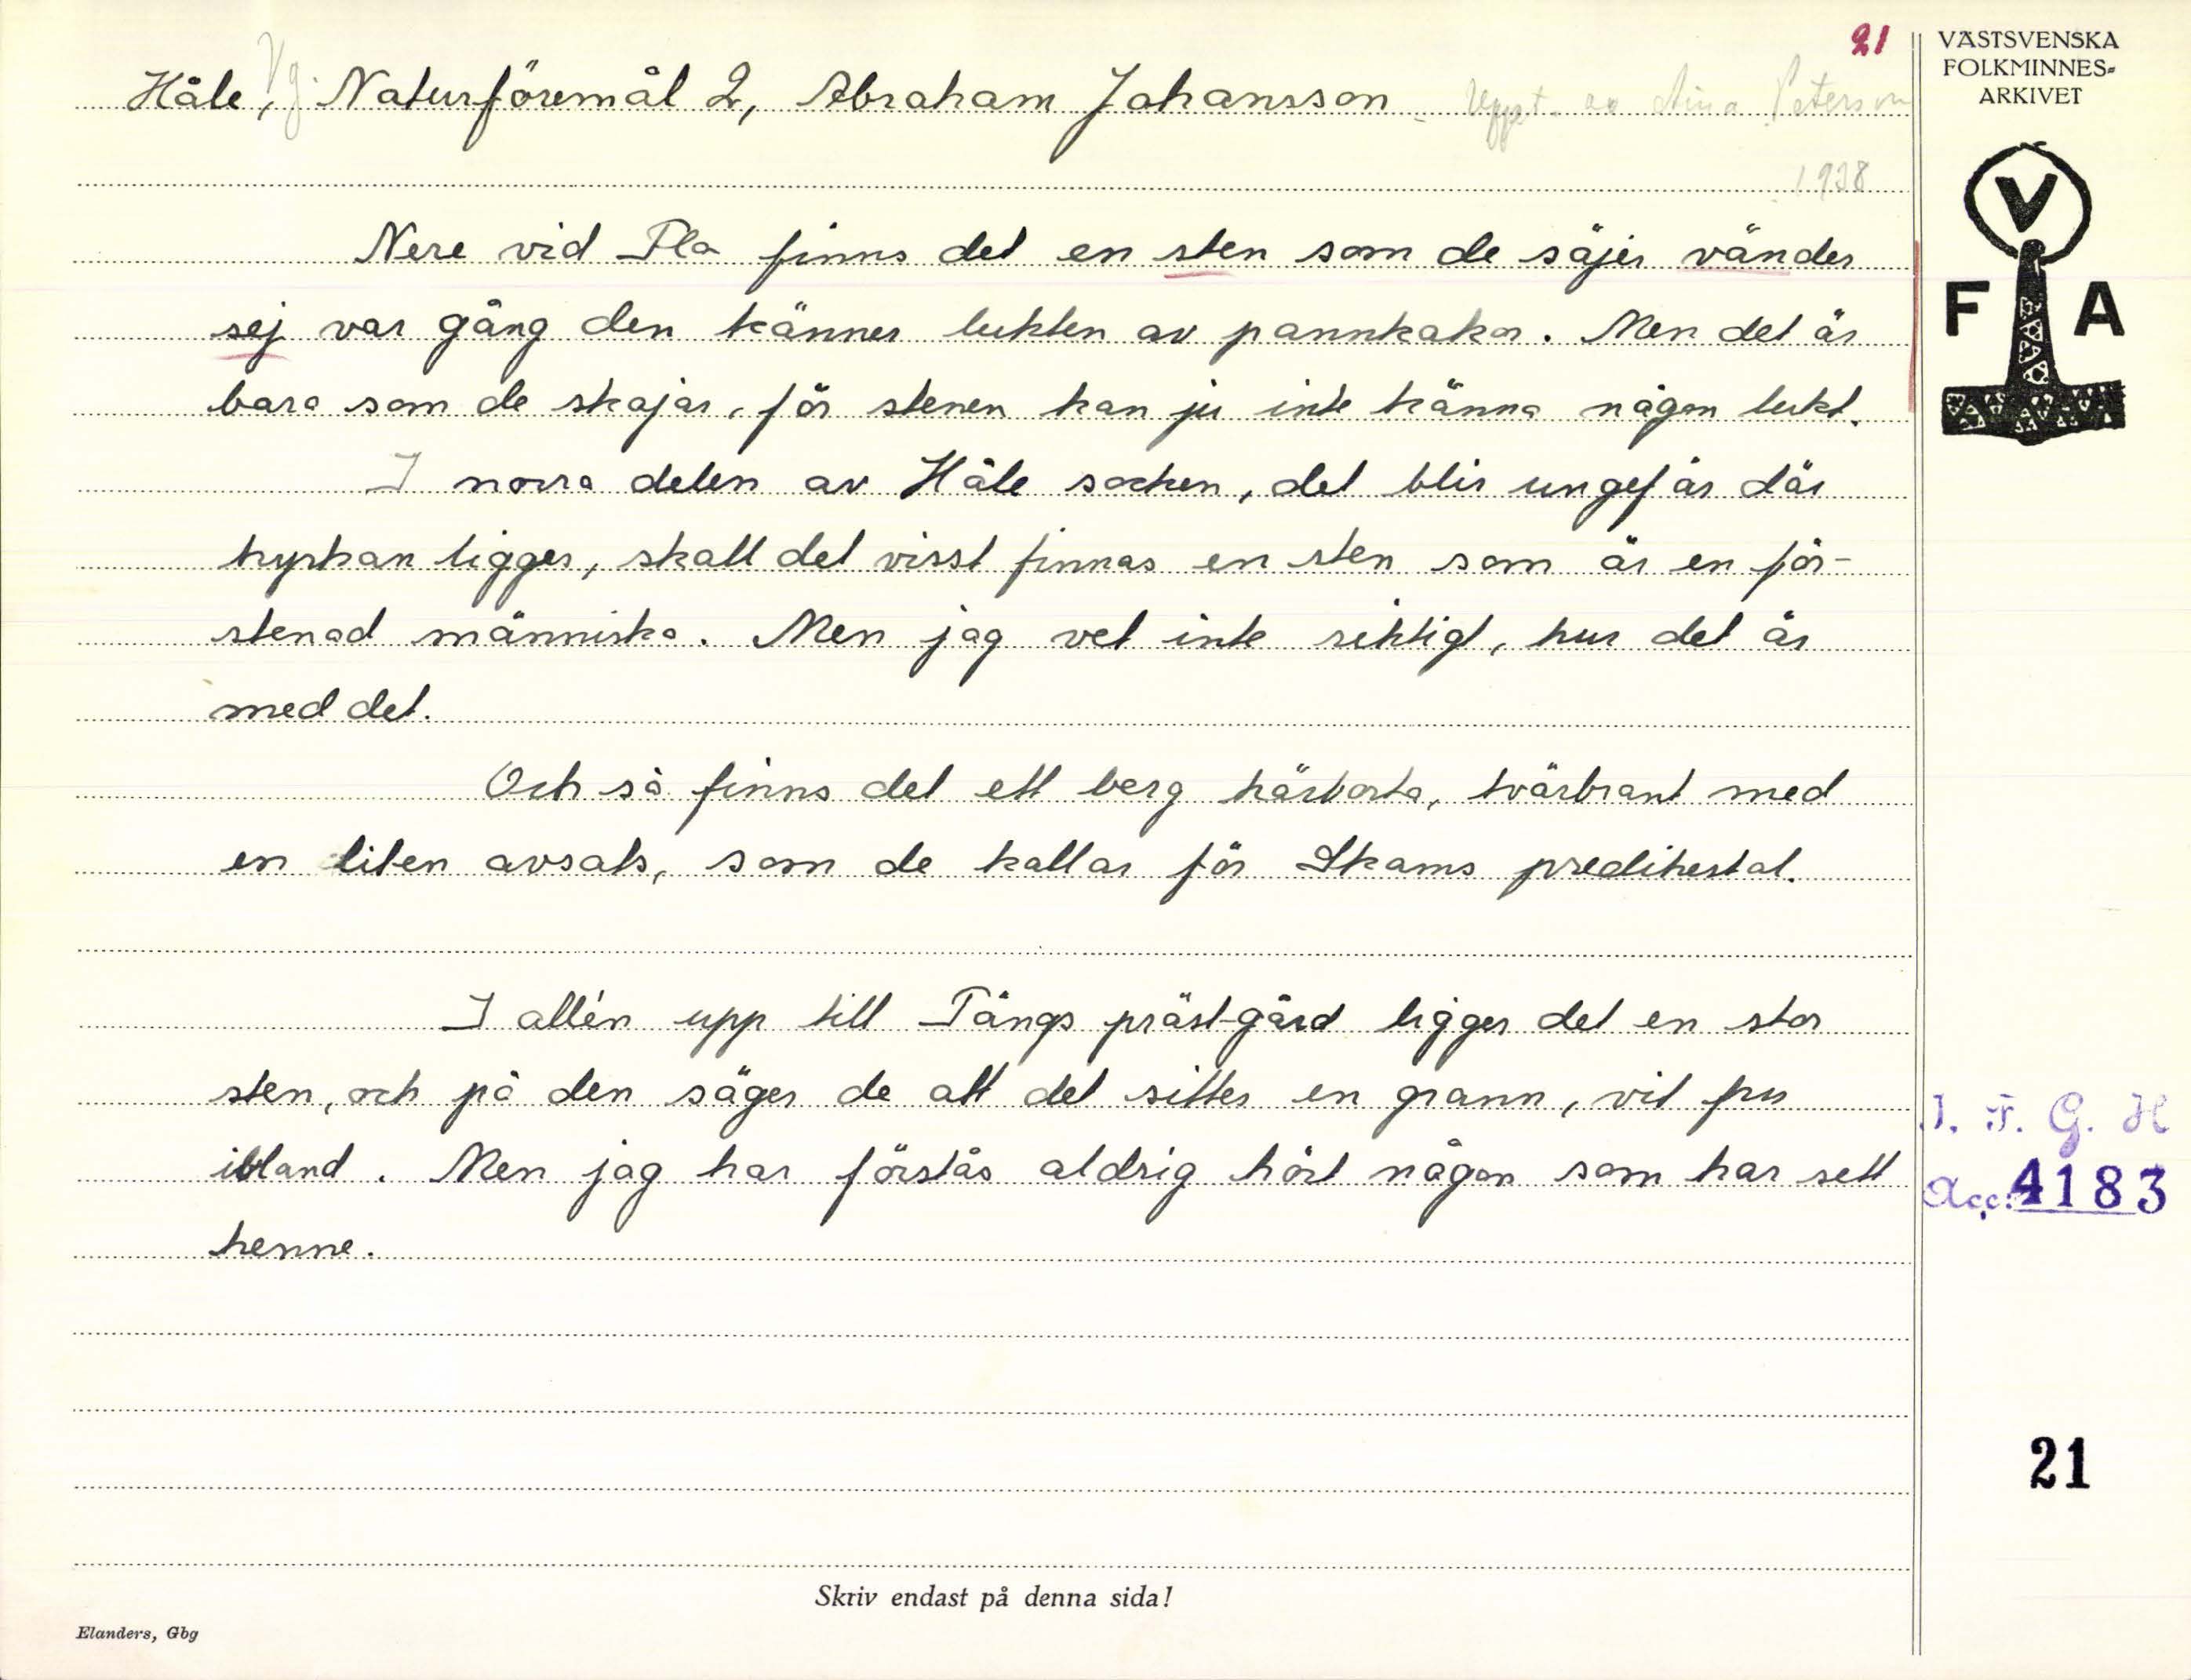 21
VÄSTSVENSKA
FOLKMINNES-
ARKIVET
Håle, Vg. Naturföremål 2, Abraham Johansson Uppt. av Aina Peterson
1938
V
F A
Nere vid Pla finns det en sten som de säjer vänder
sej var gång den känner lukten av pannkakor. Men det är
bara som de skojar, för stenen kan ju inte känna någon lukt.
I norra delen av Håle socken, det blir ungefär där
kyrkan ligger, skall det visst finnas en sten som är en för-
stenad människa. Men jag vet inte riktigt, hur det är
med det.
Och så finns det ett berg härborta, tvärbrant med
en liten avsats, som de kallar för Skams predikestol.
I allén upp till Tångs präst-gård ligger det en stor
sten, och på den säger de att det sitter en grann, vit fru
ibland. Men jag har förstås aldrig hört någon som har sett
henne.
I. F. G. H
Acc. 4183
21
Skriv endast på denna sida!
Elanders, Gbg